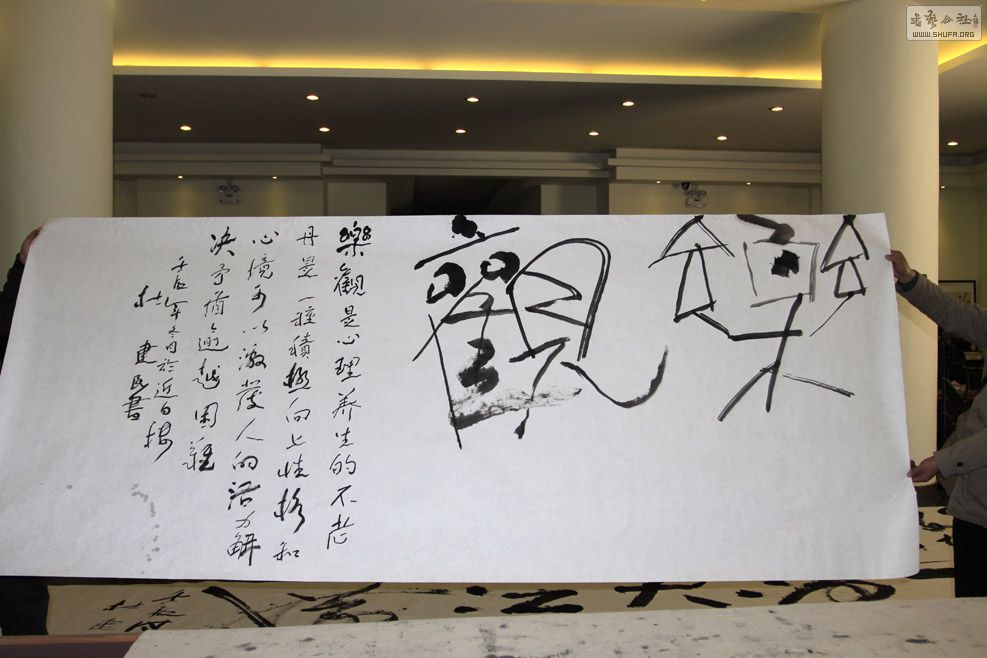 樂觀
樂觀是心理养生的不老
丹是一種積極向上性格和
心境可以激發人的活力解
决矛盾逾越困難
壬辰年冬月於近日楼
杜建民書
書藝公社
WWW.SHUFA.ORG